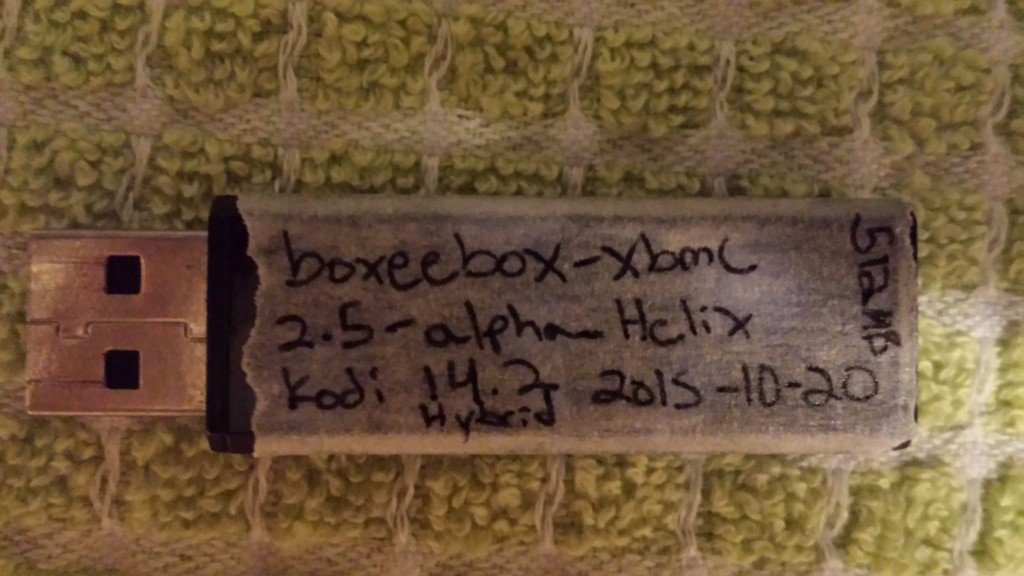 boxeebox-xbmc
2.5-alpha-Helix
Kodi 14.2 2015-10-20
Hybrid
512MB